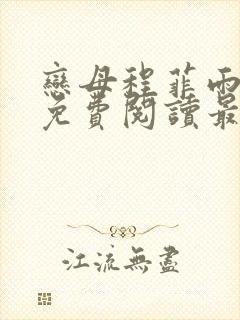 戀母程菲雨
免費閱讀最
江流無盡